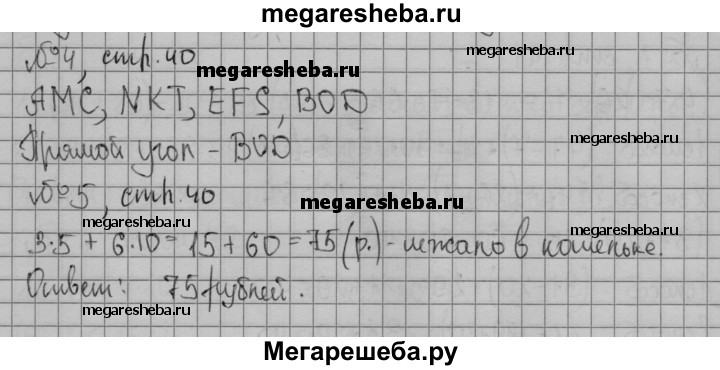 megaresheba.ru
№4, стр. 40
megaresheba.ru
АМС, NKT, EFS, BOD
megaresheba.ru
Прямой угол - BOD
№5, стр. 40
megaresheba.ru
megaresheba.ru
megaresheba.ru
3·5 + 6·10 = 15 + 60 = 75 (р.) - лежало в кошельке.
Ответ: 75 рублей.
megaresheba.ru
megaresheba.ru
Мегарешеба.ру